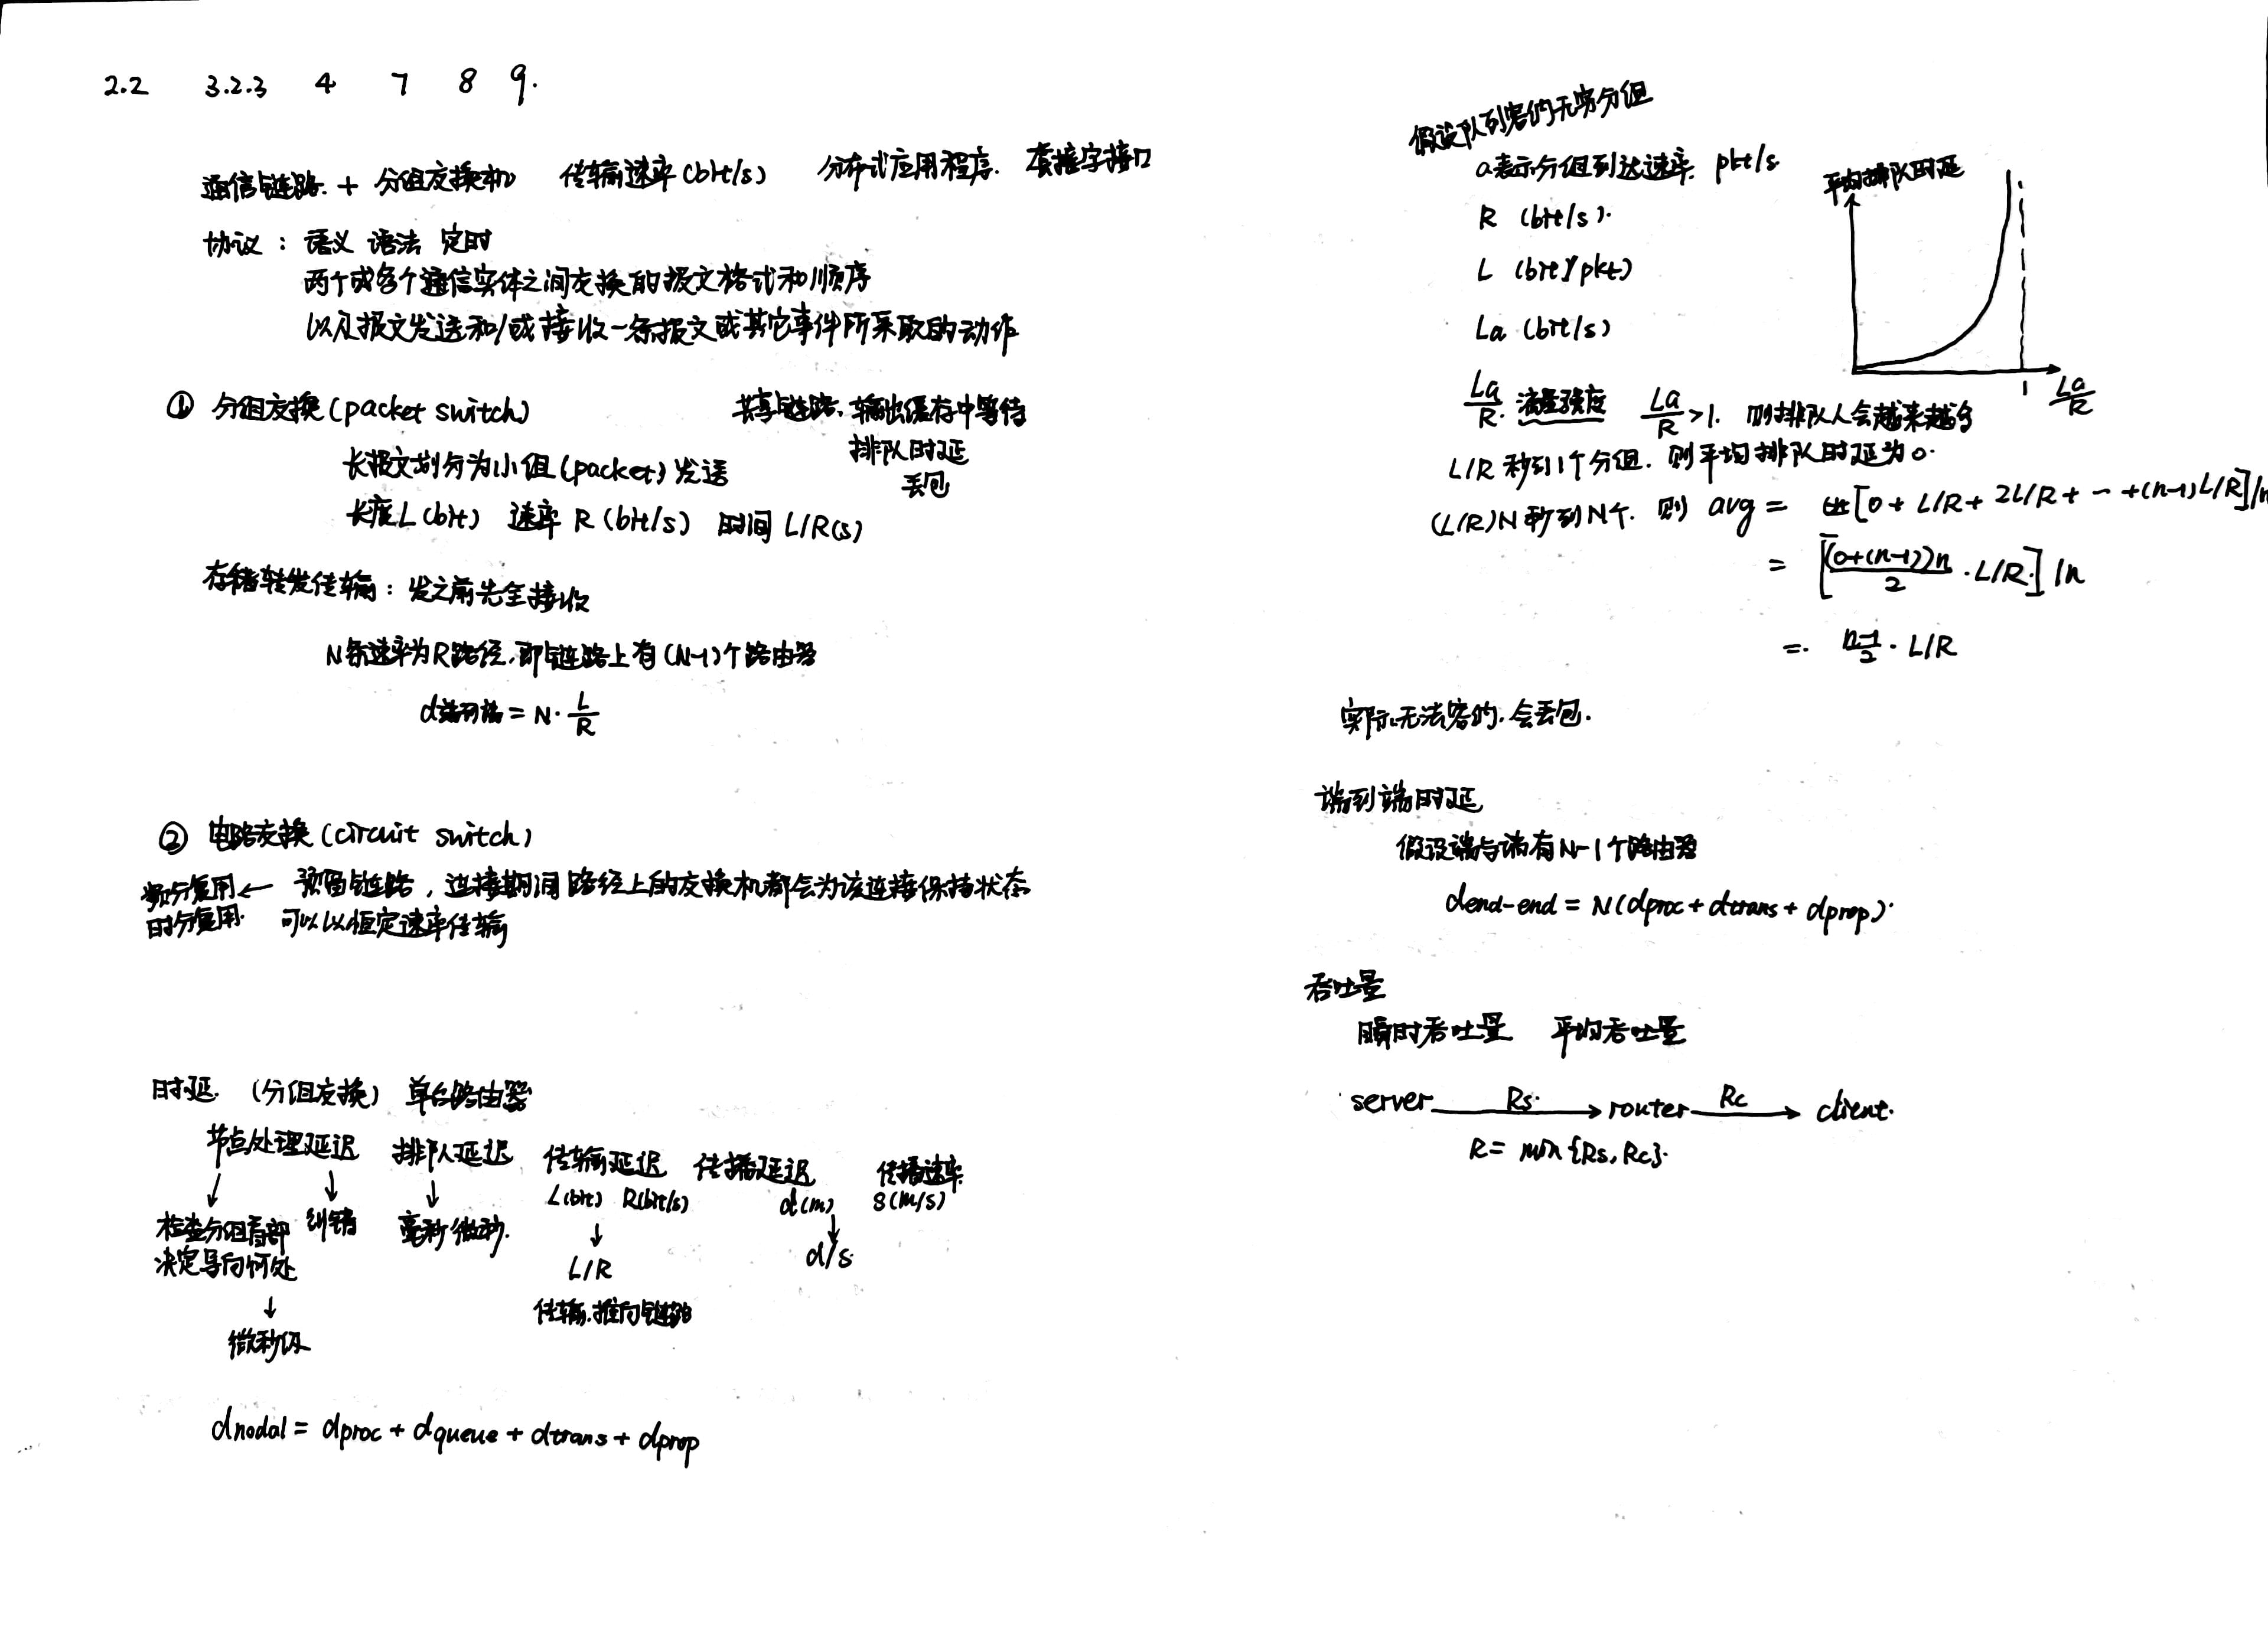 2.2 3.2.3 4 7 8 9.
通信链路 + 分组交换机 传输速率(bit/s) 分布式应用程序. 套接字接口
协议: 语义 语法 定时
两个或多个通信实体之间交换的报文格式和顺序
以及报文发送和/或接收一条报文或其它事件所采取的动作
① 分组交换(packet switch) 共享链路, 输出缓存中等待
排队时延
长报文划分为小组(packet)发送
丢包
长度L(bit) 速率R(bit/s) 时间L/R(s)
存储转发传输: 发之前先全接收
N条速率为R路径, 即链路上有(N-1)个路由器
d端到端 = N·L/R
② 电路交换(circuit switch)
频分复用← 预留链路, 连接期间路径上的交换机都会为该连接保持状态
时分复用. 可以以恒定速率传输
时延. (分组交换) 单台路由器
节点处理延迟 排队延迟 传输延迟 传播延迟 传播速率
L(bit) R(bit/s) d(m) s(m/s)
↓ ↓ ↓ ↓ ↓
检查分组首部 纠错 毫秒/微秒. L/R d/s
决定导向何处
传输, 推向链路
↓
微秒级
dnodal = dproc + dqueue + dtrans + dprop
假设队列容纳无穷分组
a表示分组到达速率. pkt/s
平均排队时延
R (bit/s).
L (bit/pkt)
La (bit/s)
1 La/R
La/R. 流量强度 La/R>1. 则排队人会越来越多
L/R秒到1个分组. 则平均排队时延为0.
(L/R)N秒到N个. 则 avg = [0 + L/R + 2L/R + ··· + (n-1)L/R]/n
= [(0+(n-1))n/2 · L/R]/n
= n-1/2 · L/R
实际无法容纳, 会丢包.
端到端时延
假设端与端有N-1个路由器
dend-end = N(dproc + dtrans + dprop)
吞吐量
瞬时吞吐量 平均吞吐量
server Rs → router Rc → client.
R = min{Rs, Rc}.